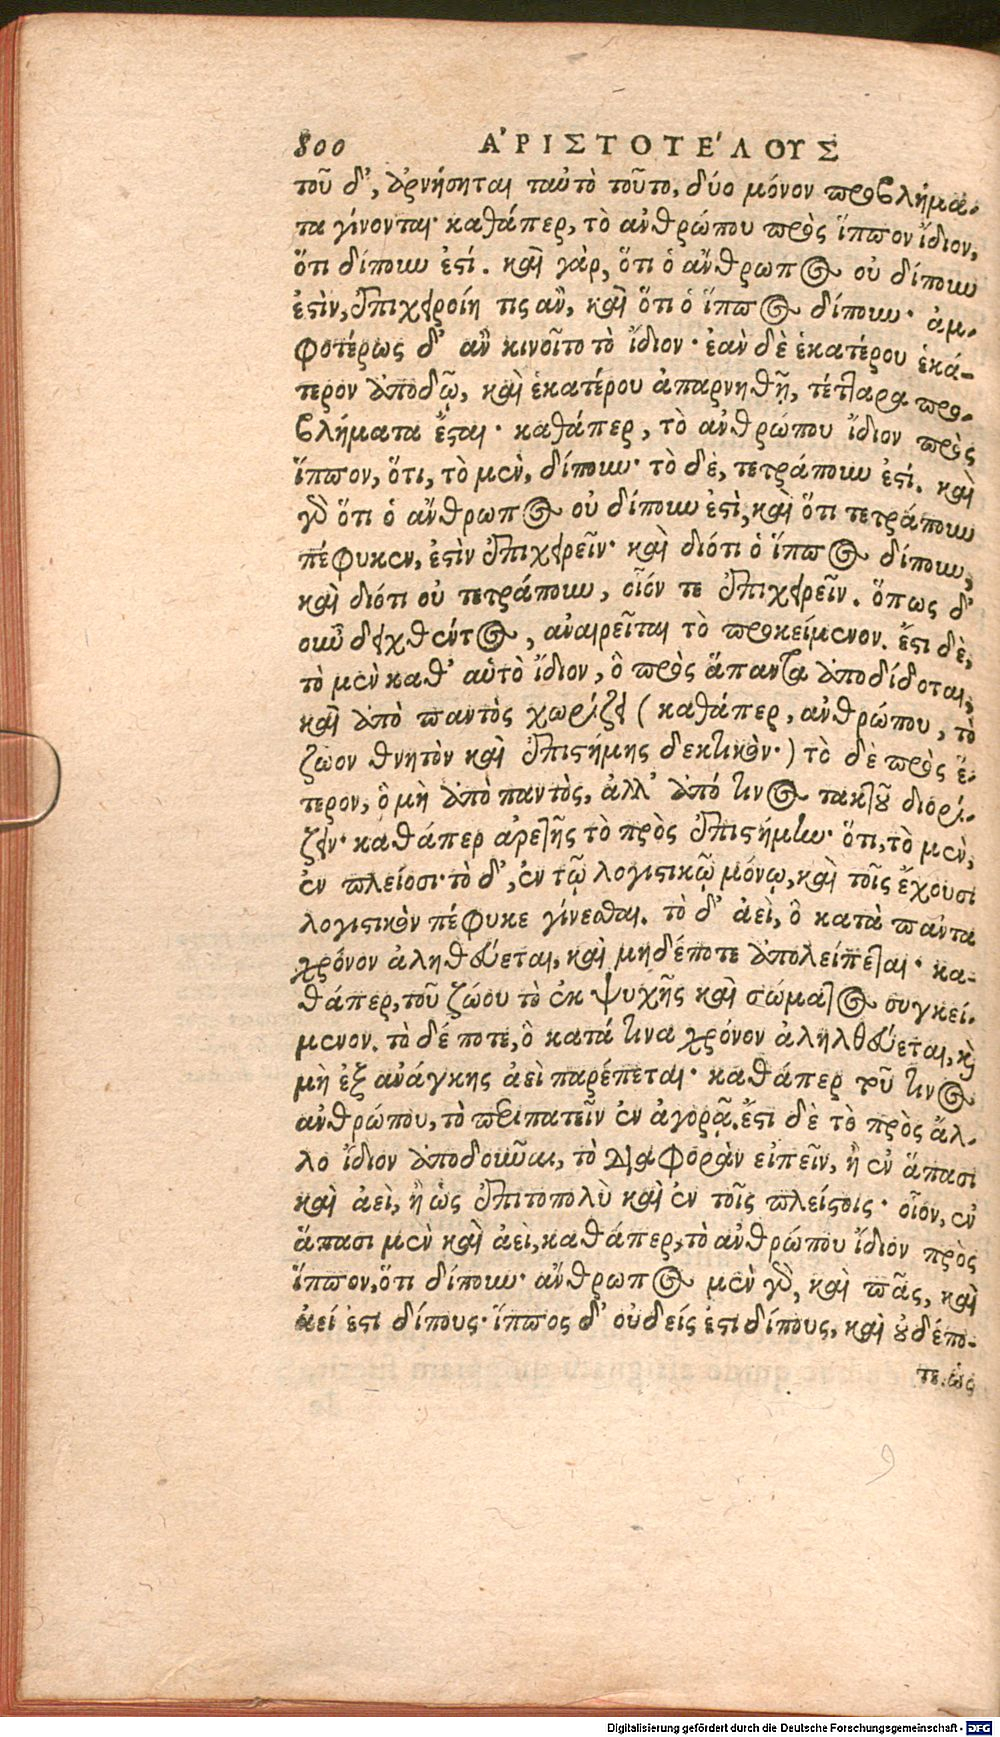 800 ἈΡΙΣΤΟΤΕ´ΛΟΥΣ
τοῦ δ', ἀρνήσηται ταὐτὸ τοῦτο, δύο μόνον προβλήμα-
τα γίνονται· καθάπερ, τὸ ἀνθρώπου πρὸς ἵππον ἴδιον,
ὅτι δίπουν ἐστί. καὶ γὰρ, ὅτι ὁ ἄνθρωπος οὐ δίπουν
ἐστὶν, ἐπιχειροίη τις ἂν, καὶ ὅτι ὁ ἵππος δίπουν· ἀμ-
φοτέρως δ' ἂν κινοῖτο τὸ ἴδιον· ἐὰν δὲ ἑκατέρου ἑκά-
τερον ἀποδῷ, καὶ ἑκατέρου ἀπαρνηθῇ, τέτταρα προ-
βλήματα ἔσται· καθάπερ, τὸ ἀνθρώπου ἴδιον πρὸς
ἵππον, ὅτι, τὸ μὲν, δίπουν· τὸ δὲ, τετράπουν ἐστί. καὶ
γὰρ ὅτι ὁ ἄνθρωπος οὐ δίπουν ἐστὶ, καὶ ὅτι τετράπουν
πέφυκεν, ἐστὶν ἐπιχειρεῖν· καὶ διότι ὁ ἵππος δίπουν,
καὶ διότι οὐ τετράπουν, οἷόν τε ἐπιχειρεῖν. ὅπως δ'
οὖν δειχθέντος, ἀναιρεῖται τὸ προκείμενον. ἔστι δὲ,
τὸ μὲν καθ' αὑτὸ ἴδιον, ὃ πρὸς ἅπαντα ἀποδίδοται,
καὶ ἀπὸ παντὸς χωρίζει (καθάπερ, ἀνθρώπου, τὸ
ζῶον θνητὸν καὶ ἐπιστήμης δεκτικὸν·) τὸ δὲ πρὸς ἕ-
τερον, ὃ μὴ ἀπὸ παντὸς, ἀλλ' ἀπό τινος τακτοῦ διορί-
ζειν· καθάπερ ἀρετῆς τὸ πρὸς ἐπιστήμην· ὅτι, τὸ μὲν,
ἐν πλείοσι· τὸ δ', ἐν τῷ λογιστικῷ μόνῳ, καὶ τοῖς ἔχουσι
λογιστικὸν πέφυκε γίνεσθαι. τὸ δ' ἀεὶ, ὃ κατὰ πάντα
χρόνον ἀληθεύεται, καὶ μηδέποτε ἀπολείπεται· κα-
θάπερ, τοῦ ζώου τὸ ἐκ ψυχῆς καὶ σώματος συγκεί-
μενον. τὸ δέ ποτε, ὃ κατά τινα χρόνον ἀληλθεύεται, καὶ
μὴ ἐξ ἀνάγκης ἀεὶ παρέπεται· καθάπερ τοῦ τινος
ἀνθρώπου, τὸ περιπατεῖν ἐν ἀγορᾷ. ἔστι δὲ τὸ πρὸς ἄλ-
λο ἴδιον ἀποδοῦναι, τὸ διαφορὰν εἰπεῖν, ἢ ἐν ἅπασι
καὶ ἀεὶ, ἢ ὡς ἐπιτοπολὺ καὶ ἐν τοῖς πλείστοις· οἷον, ἐν
ἅπασι μὲν καὶ ἀεὶ, καθάπερ, τὸ ἀνθρώπου ἴδιον πρὸς
ἵππον, ὅτι δίπουν· ἄνθρωπος μὲν γὰρ, καὶ πᾶς, καὶ
ἀεί ἐστι δίπους· ἵππος δ' οὐδείς ἐστι δίπους, καὶ οὐδέπο-
τε. ὡς
Digitalisierung gefördert durch die Deutsche Forschungsgemeinschaft - DFG